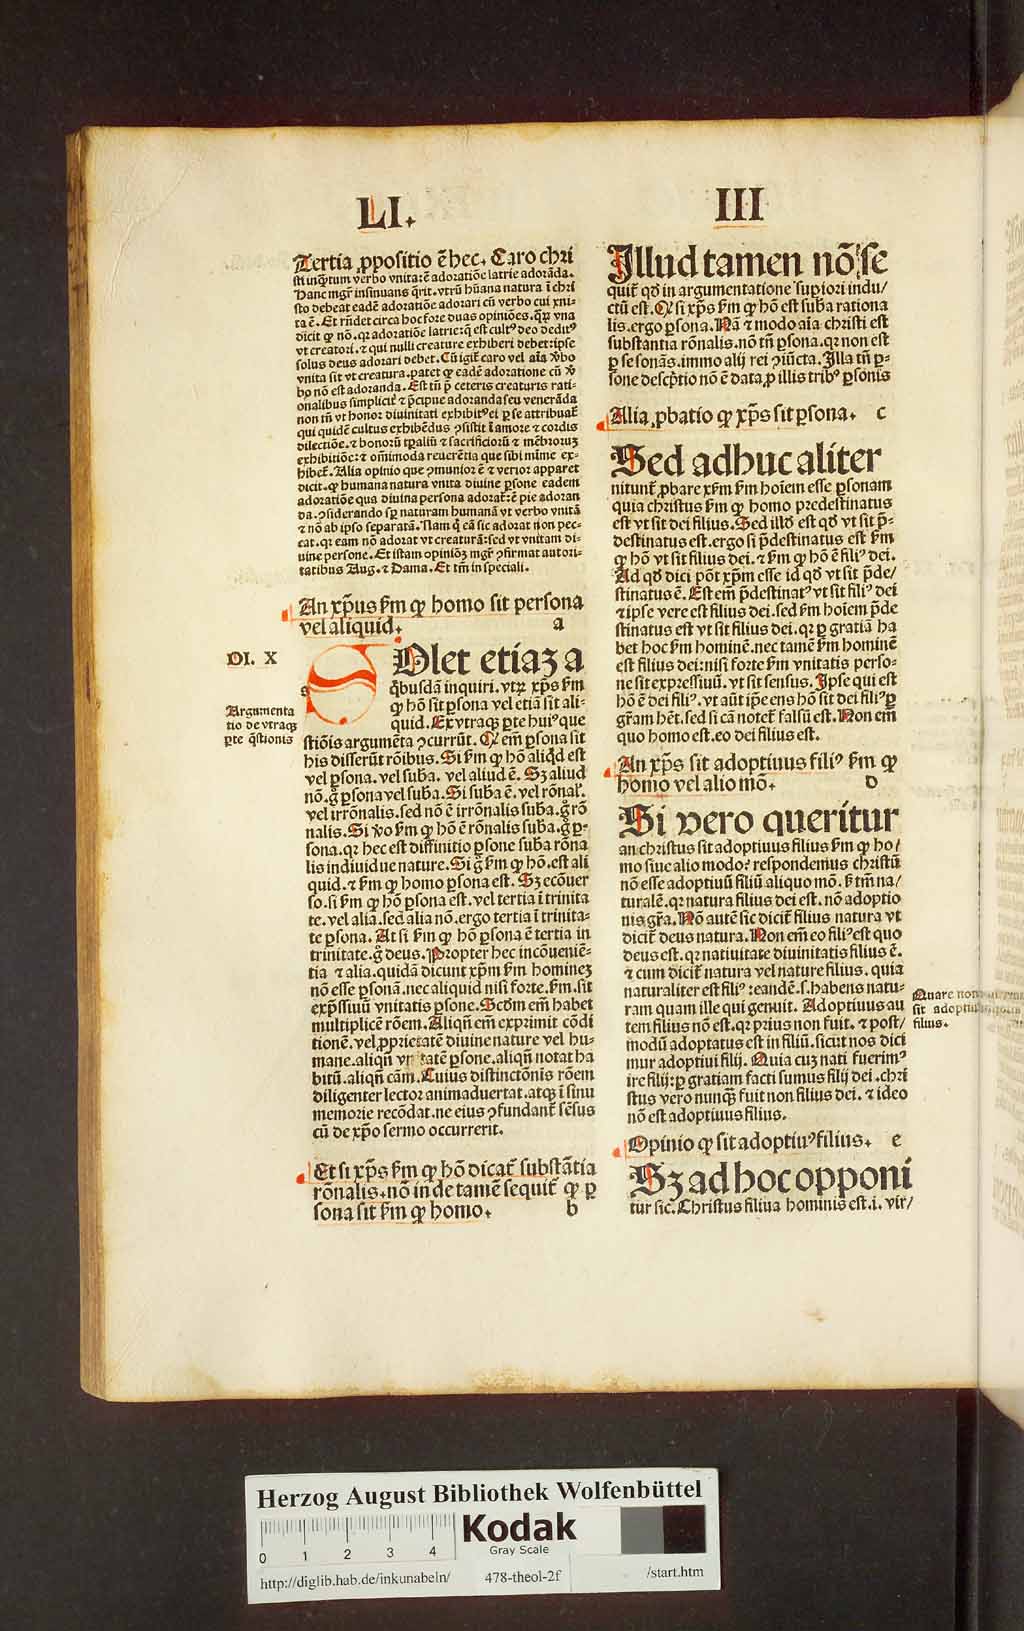 LI. III
Tertia ꝓpositio ē hec. Caro chri
sti inqꝫtum verbo vnita: ē adoratiōe latrie adorāda.
Hanc mgr̄ insinuans q̄rit. vtrū hūana natura ī chri
sto debeat eadē adoratiōe adorari cū verbo cui vni-
ta ē. Et rn̄det circa hoc fore duas opiniōes. qꝝ vna
dicit ꝙ nō. qꝛ adoratiōe latrie: q̄ est cultꝰ deo deditꝰ
vt creatori. ⁊ qui nulli creature exhiberi debet: ipse
solus deus adorari debet. Cū igit̄ caro vel aīa v̄bo
vnita sit vt creatura. patet ꝙ eadē adoratione cū v̄
bo nō est adoranda. Est tn̄ p̄ ceteris creaturis rati-
onalibus simplicit̄ ⁊ p̄cipue adoranda seu venerāda
non in̄ vt honor diuinitati exhibitꝰ ei ꝑ se attribuat̄
qui quidē cultus exhibēdus ꝯsistit ī amore ⁊ cordis
dilectiōe. ⁊ honorū tꝑaliū ⁊ sacrificiorū ⁊ mēbrorum
exhibitiōe: ⁊ oīmoda reuerētia que sibi mīme ex-
hibet̄. Alia opinio que ꝯmunior ē ⁊ verior apparet
dicit. ꝙ humana natura vnita diuine ꝑsone eadem
adoratiōe qua diuina persona adorat̄: ē pie adoran
da. ꝯsiderando sꝑ naturam humanā vt verbo vnitā
⁊ nō ab ipso separatā. Nam q̄ eā sic adorat non pec-
cat. qꝛ eam nō adorat vt creaturā: sed vt vnitam di-
uine persone. Et istam opiniōꝫ mgr̄ ꝯfirmat autori-
tatibus Aug. ⁊ Dama. Et tm̄ in speciali.
An xp̄us ẜm ꝙ homo sit persona
vel aliquid. a
DI. X
Argumenta
tio de vtraqꝫ
ꝑte q̄stionis
SOlet etiaꝫ a
q̄busdā inquiri. vtꝝ xp̄s ẜm
ꝙ hō sit ꝑsona vel etiā sit ali-
quid. Ex vtraqꝫ ꝑte huiꝰ que
stiōis argumēta ꝯcurrūt. Q̄ em̄ ꝑsona sit
his disserūt rōibus. Si ẜm ꝙ hō aliqd̄ est
vel ꝑsona. vel suba. vel aliud ē. Sꝫ aliud
nō. g̊ ꝑsona vel suba. Si suba ē. vel rōnal̓.
vel irrōnalis. sed nō ē irrōnalis suba. g̊ rō
nalis. Si v̄o ẜm ꝙ hō ē rōnalis suba. g̊ ꝑ-
sona. qꝛ hec est diffinitio ꝑsone suba rōna
lis indiuidue nature. Si g̊ ẜm ꝙ hō. est ali
quid. ⁊ ẜm ꝙ homo ꝑsona est. Sꝫ ecōuer
so. si ẜm ꝙ hō ꝑsona est. vel tertia ī trinita
te. vel alia. sed alia nō. ergo tertia ī trinita-
te ꝑsona. At si ẜm ꝙ hō ꝑsona ē tertia in
trinitate. g̊ deus. Propter hec incōueniē-
tia ⁊ alia. quidā dicunt xp̄m ẜm homineꝫ
nō esse ꝑsonā. nec aliquid nisi forte. ẜm. sit
exp̄ssiuū vnitatis ꝑsone. Scd̄m em̄ habet
multiplicē rōem. Aliqn̄ em̄ exprimit cōdi
tionē. vel ꝓprietatē diuine nature vel hu-
mane. aliqn̄ vnitatē ꝑsone. aliqn̄ notat ha
bitū. aliqn̄ cām. Cuius distinctōnis rōem
diligenter lector animaduertat. atqꝫ ī sinu
memorie recōdat. ne eius ꝯfundant̄ sēsus
cū de xp̄o sermo occurrerit.
Et si xp̄s ẜm ꝙ hō dicat̄ substātia
rōnalis. nō inde tamē sequit̄ ꝙ ꝑ
sona sit ẜm ꝙ homo. b
Illud tamen nō se
quit̄ qd̄ in argumentatione suꝑiori indu/
ctū est. Q̄ si xp̄s ẜm ꝙ hō est suba rationa
lis. ergo ꝑsona. Nā ⁊ modo aīa christi est
substantia rōnalis. nō tn̄ ꝑsona. qꝛ non est
ꝑ se sonās. immo alij rei ꝯiūcta. Illa tn̄ ꝑ-
sone descp̄tio nō ē data ꝓ illis tribꝰ ꝑsonis
Alia ꝓbatio ꝙ xp̄s sit ꝑsona. c
Sed adhuc aliter
nitunt̄ ꝓbare xp̄m ẜm hoīem esse ꝑsonam
quia christus ẜm ꝙ homo predestinatus
est vt sit dei filius. Sed illd̄ est qd̄ vt sit p̄-
destinatus est. ergo si p̄destinatus est ẜm
ꝙ hō vt sit filius dei. ⁊ ẜm ꝙ hō ē filiꝰ dei.
Ad qd̄ dici pōt xp̄m esse id qd̄ vt sit p̄de/
stinatus ē. Est em̄ p̄destinatꝰ vt sit filiꝰ dei
⁊ ipse vere est filius dei. sed ẜm hoīem p̄de
stinatus est vt sit filius dei. qꝛ ꝑ gratiā ha
bet hoc ẜm hominē. nec tamē ẜm hominē
est filius dei: nisi forte ẜm vnitatis perso-
ne sit expressiuū. vt sit sensus. Ipse qui est
hō ē dei filiꝰ. vt aūt ip̄e ens hō sit dei filiꝰ ꝑ
gr̄am hēt. sed si cā notet̄ falsū est. Non em̄
quo homo est. eo dei filius est.
An xp̄s sit adoptiuus filiꝰ ẜm ꝙ
homo vel alio mō. d
Si vero queritur
an christus sit adoptiuus filius ẜm ꝙ ho/
mo siue alio modo? respondemus christū
nō esse adoptiuū filiū aliquo mō. ẜ tm̄ na/
turalē. qꝛ natura filius dei est. nō adoptio
nis gr̄a. Nō autē sic dicit̄ filius natura vt
dicit̄ deus natura. Non em̄ eo filiꝰ est quo
deus est. qꝛ natiuitate diuinitatis filius ē.
⁊ cum dicit̄ natura vel nature filius. quia
naturaliter est filiꝰ: eandē. s. habens natu-
ram quam ille qui genuit. Adoptiuus au
tem filius nō est. qꝛ prius non fuit. ⁊ post/
modū adoptatus est in filiū. sicut nos dici
mur adoptiui filij. Quia cuꝫ nati fuerimꝰ
ire filij: ꝑ gratiam facti sumus filij dei. chri
stus vero nunqꝫ fuit non filius dei. ⁊ ideo
nō est adoptiuus filius.
Quare non
sit adoptiuus
filius.
Opinio ꝙ sit adoptiuꝰ filius. e
Sꝫ ad hoc opponi
tur sic. Christus filius hominis est. i. vir/
Herzog August Bibliothek Wolfenbüttel
0 1 2 3 4
Kodak
Gray Scale
http://diglib.hab.de/inkunabeln/ 478-theol-2f /start.htm